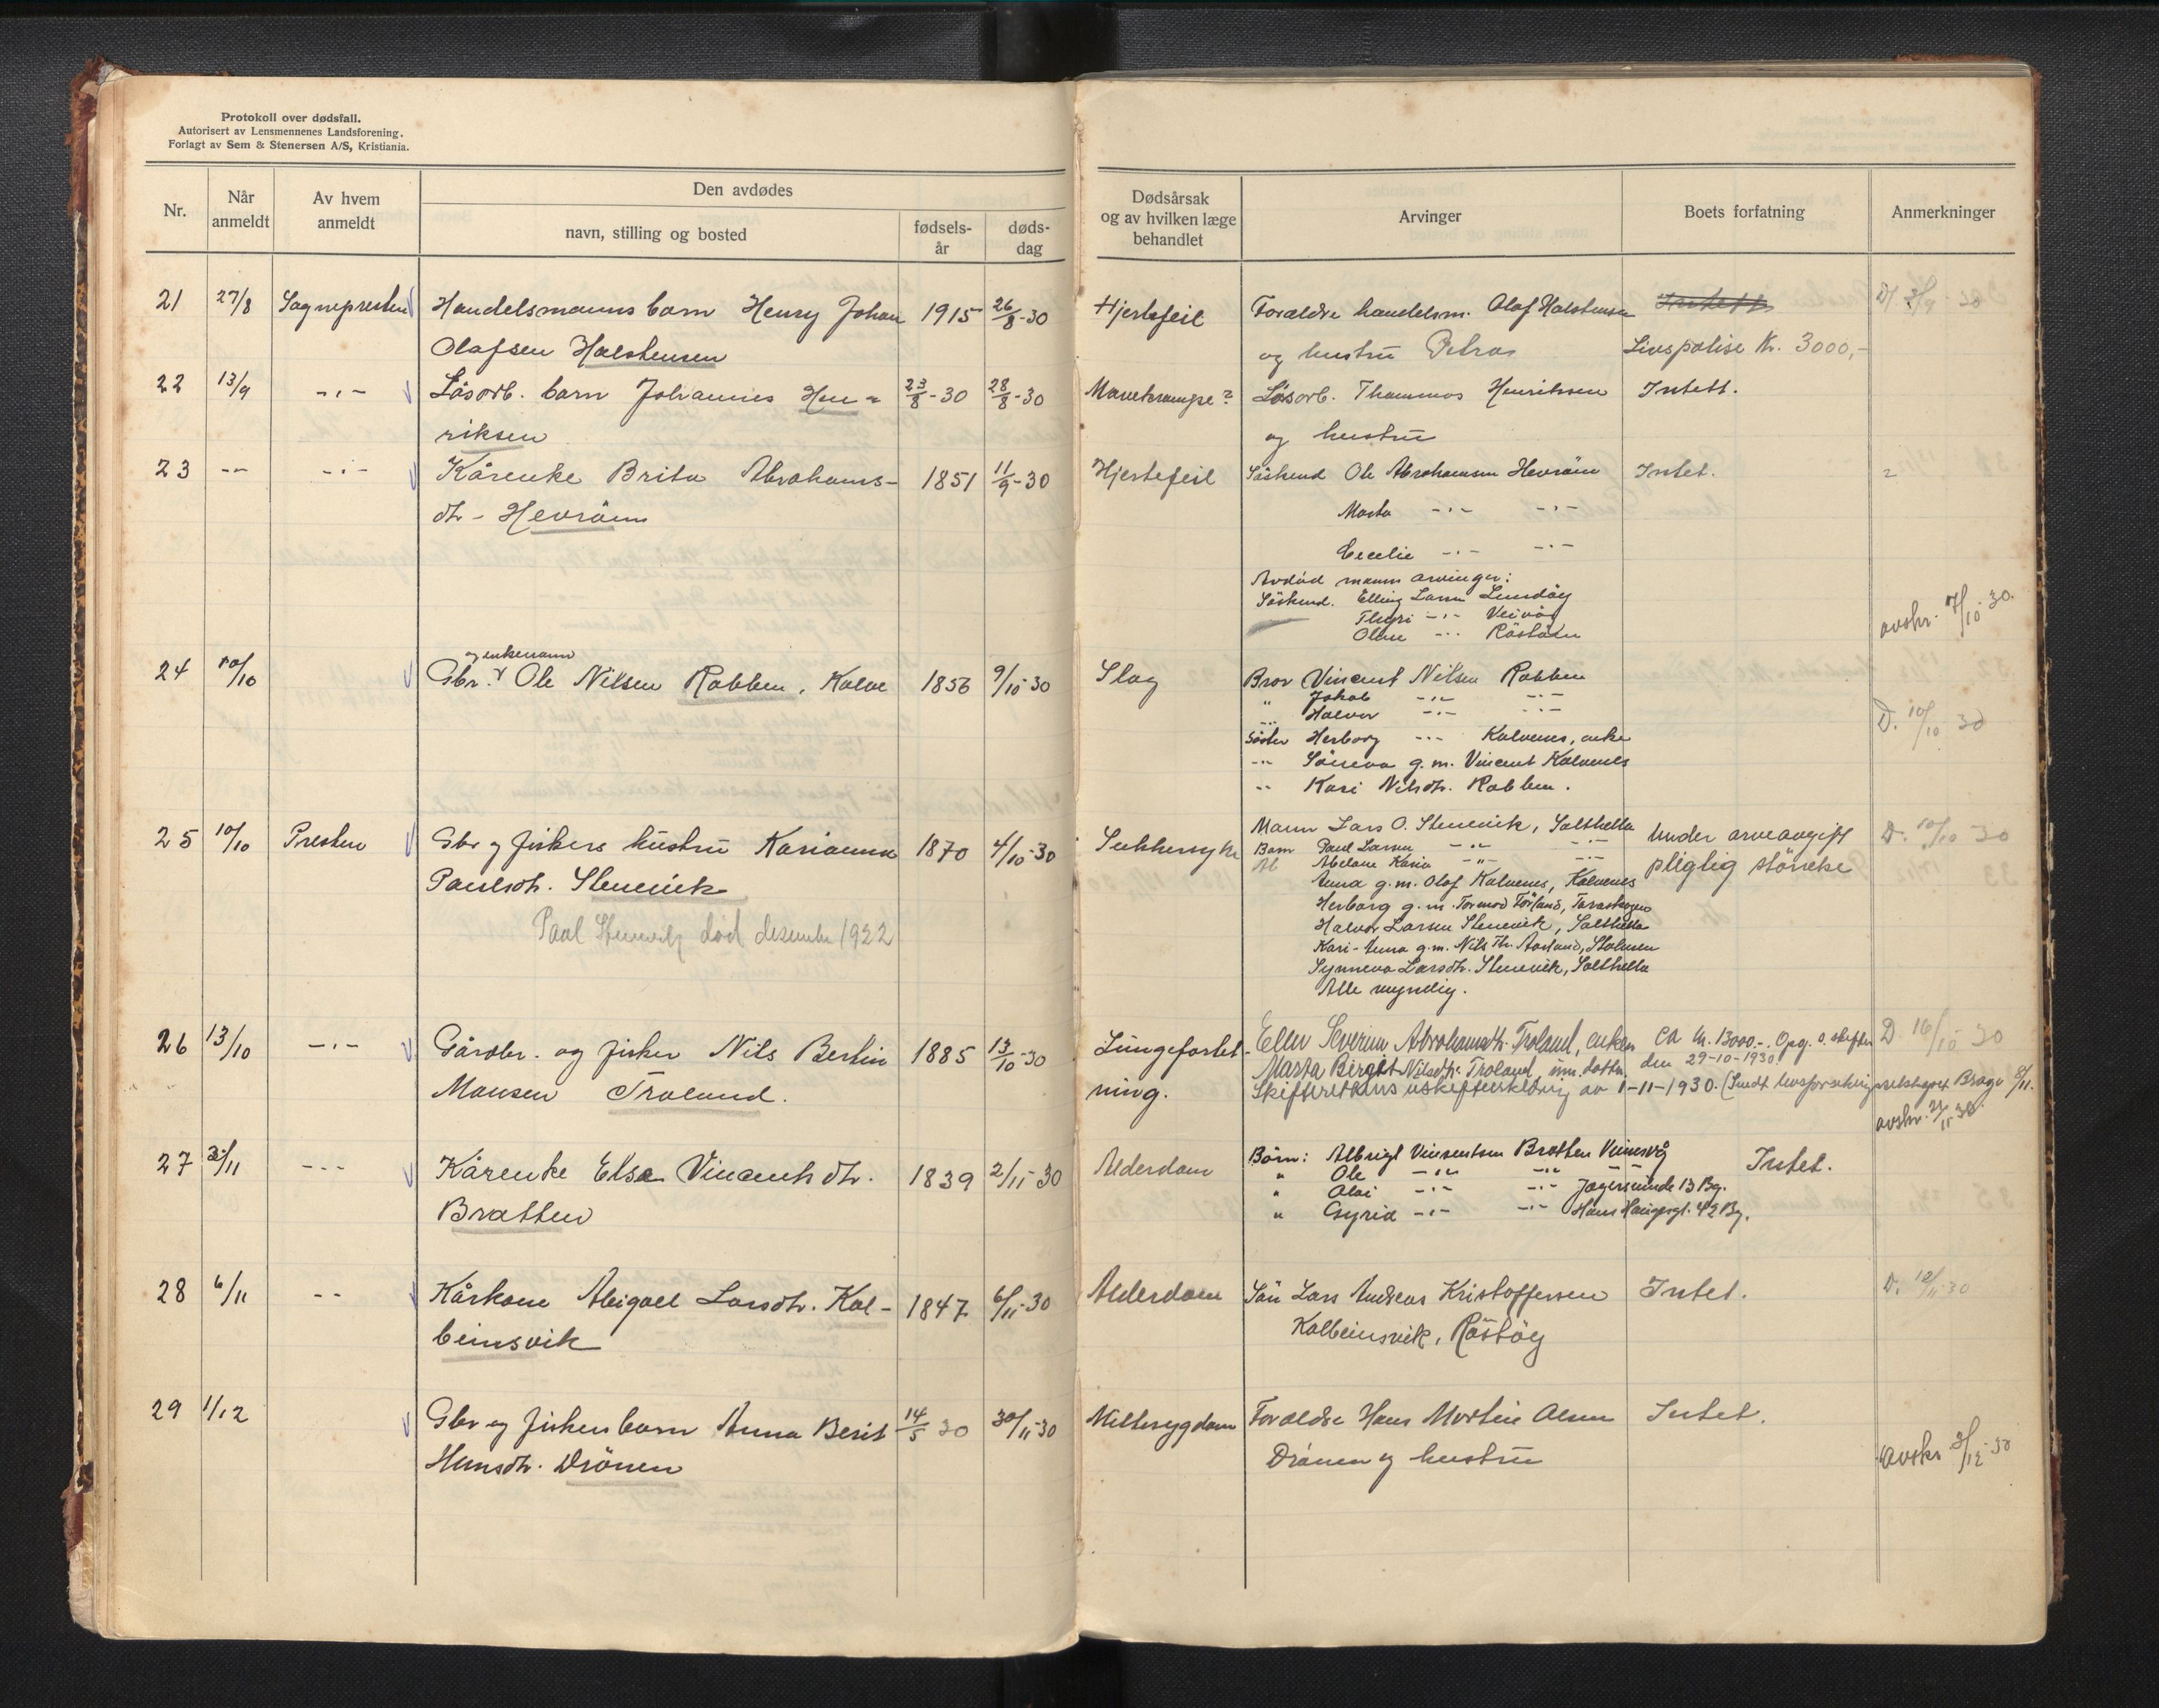 Protokoll over dødsfall.
Autorisert av Lensmennenes Landsforening.
Forlagt av Sem & Stenersen A/S, Kristiania.
Nr.
Når anmeldt
Av hvem anmeldt
Den avdødes
navn, stilling og bosted
fødsels-år
døds-dag
Dødsårsak og av hvilken læge behandlet
Arvinger
Boets forfatning
Anmerkninger
21 27/8 Sognepresten Handelsmanns barn Henry Johan 1915 26/8-30 Hjertefeil Forældre handelsm. Olaf Halstensen
Olafsen Halstensen og hustru Petra Livspolise Kr. 3000,-
22 13/9 -"- Løsarb. barn Johannes Hen- 23/8-30 28/8-30 Mavekrampe? Løsarb. Thommas Henriksen Intet.
riksen og hustru
23 -"- -"- Kårenke Brita Abrahams- 1851 11/9-30 Hjertefeil Søskend Ole Abrahamsen Hevrøin Intet.
dtr. Hevrøin Marta -"- -"-
Cecelie -"- -"-
Avdød manns arvinger:
Søskend. Elling Larsen Lundøy
-"-
Oline -"-
avskr. 7/10-30.
og enkemann
24 10/10 Gbr. Ole Nilsen Rabben, Kalve 1856 9/10-30 Slag Bror Vincent Nilsen Rabben
" Jakob -"- -"-
-"- Halvor -"- -"-
D. 10/10 30
Søster Herborg -"- Kalvenes, enke
-"- Synneva g.m. Vincent Kalvenes
-"- Kari Nilsdtr. Rabben.
25 10/10 Presten Gbr og fiskers hustru Karianna 1870 4/10-30 Sukkersyke Mann Lars O. Stenevik, Salthella Under arveavgift D. 10/10 30
Paulsdtr. Stenevik Barn Paul Larsen -"- -"- pligtig størrelse
Abelone Karia -"- -"-
Anna g.m. Olaf Kalvenes, Kalvenes
Herborg g.m. Tormod
Paul Stenevik død desember 1922
Halvor Larsen Stenevik, Salthella
Kari-Anna g.m. Nils Th. Aarland, Stolmen
Synneva Larsdtr. Stenevik, Salthella
Alle myndig.
26 13/10 -"- Gårdbr. og fisker Nils Bertin 1885 13/10-30 Lungefortet- Ellen Severine Abrahamsdtr. Troland, enke ca kr. 13000-. Opg. o. skiften D 16/10 30
Monsen Troland. ning. Marta Birgit Nilsdtr. Troland, um. datter den 29-10-1930
Skifterettens uskifteerklæring av 1-11-1930. Brage 8/11.
avskr. 30.
27 3/11 -"- Kårenke Elsa Vincentsdtr. 1839 2/11-30 Alderdom Børn: Albrigt Vincentsen Bratten Vinnesvåg Intet.
Bratten " Ole -"- -"-
" Olai -"- -"- 13 Bg.
" Gyria -"- -"- Hans Haugesgt. 42 Bg.
28 6/11 -"- Kårkone Abigael Larsdtr. Kol- 1847 6/11-30 Alderdom Søn Lars Andreas Kristoffersen Intet. D. 12/11-30
beinsvik Kolbeinsvik, Røstøy
29 1/12 Gbr og fiskers barn Anna Berit 14/5 30 30/11-30 Foreldre Hans Martin Olsen Intet.
Hansdtr. Drönen Drönen og hustru avskr 2/12-30